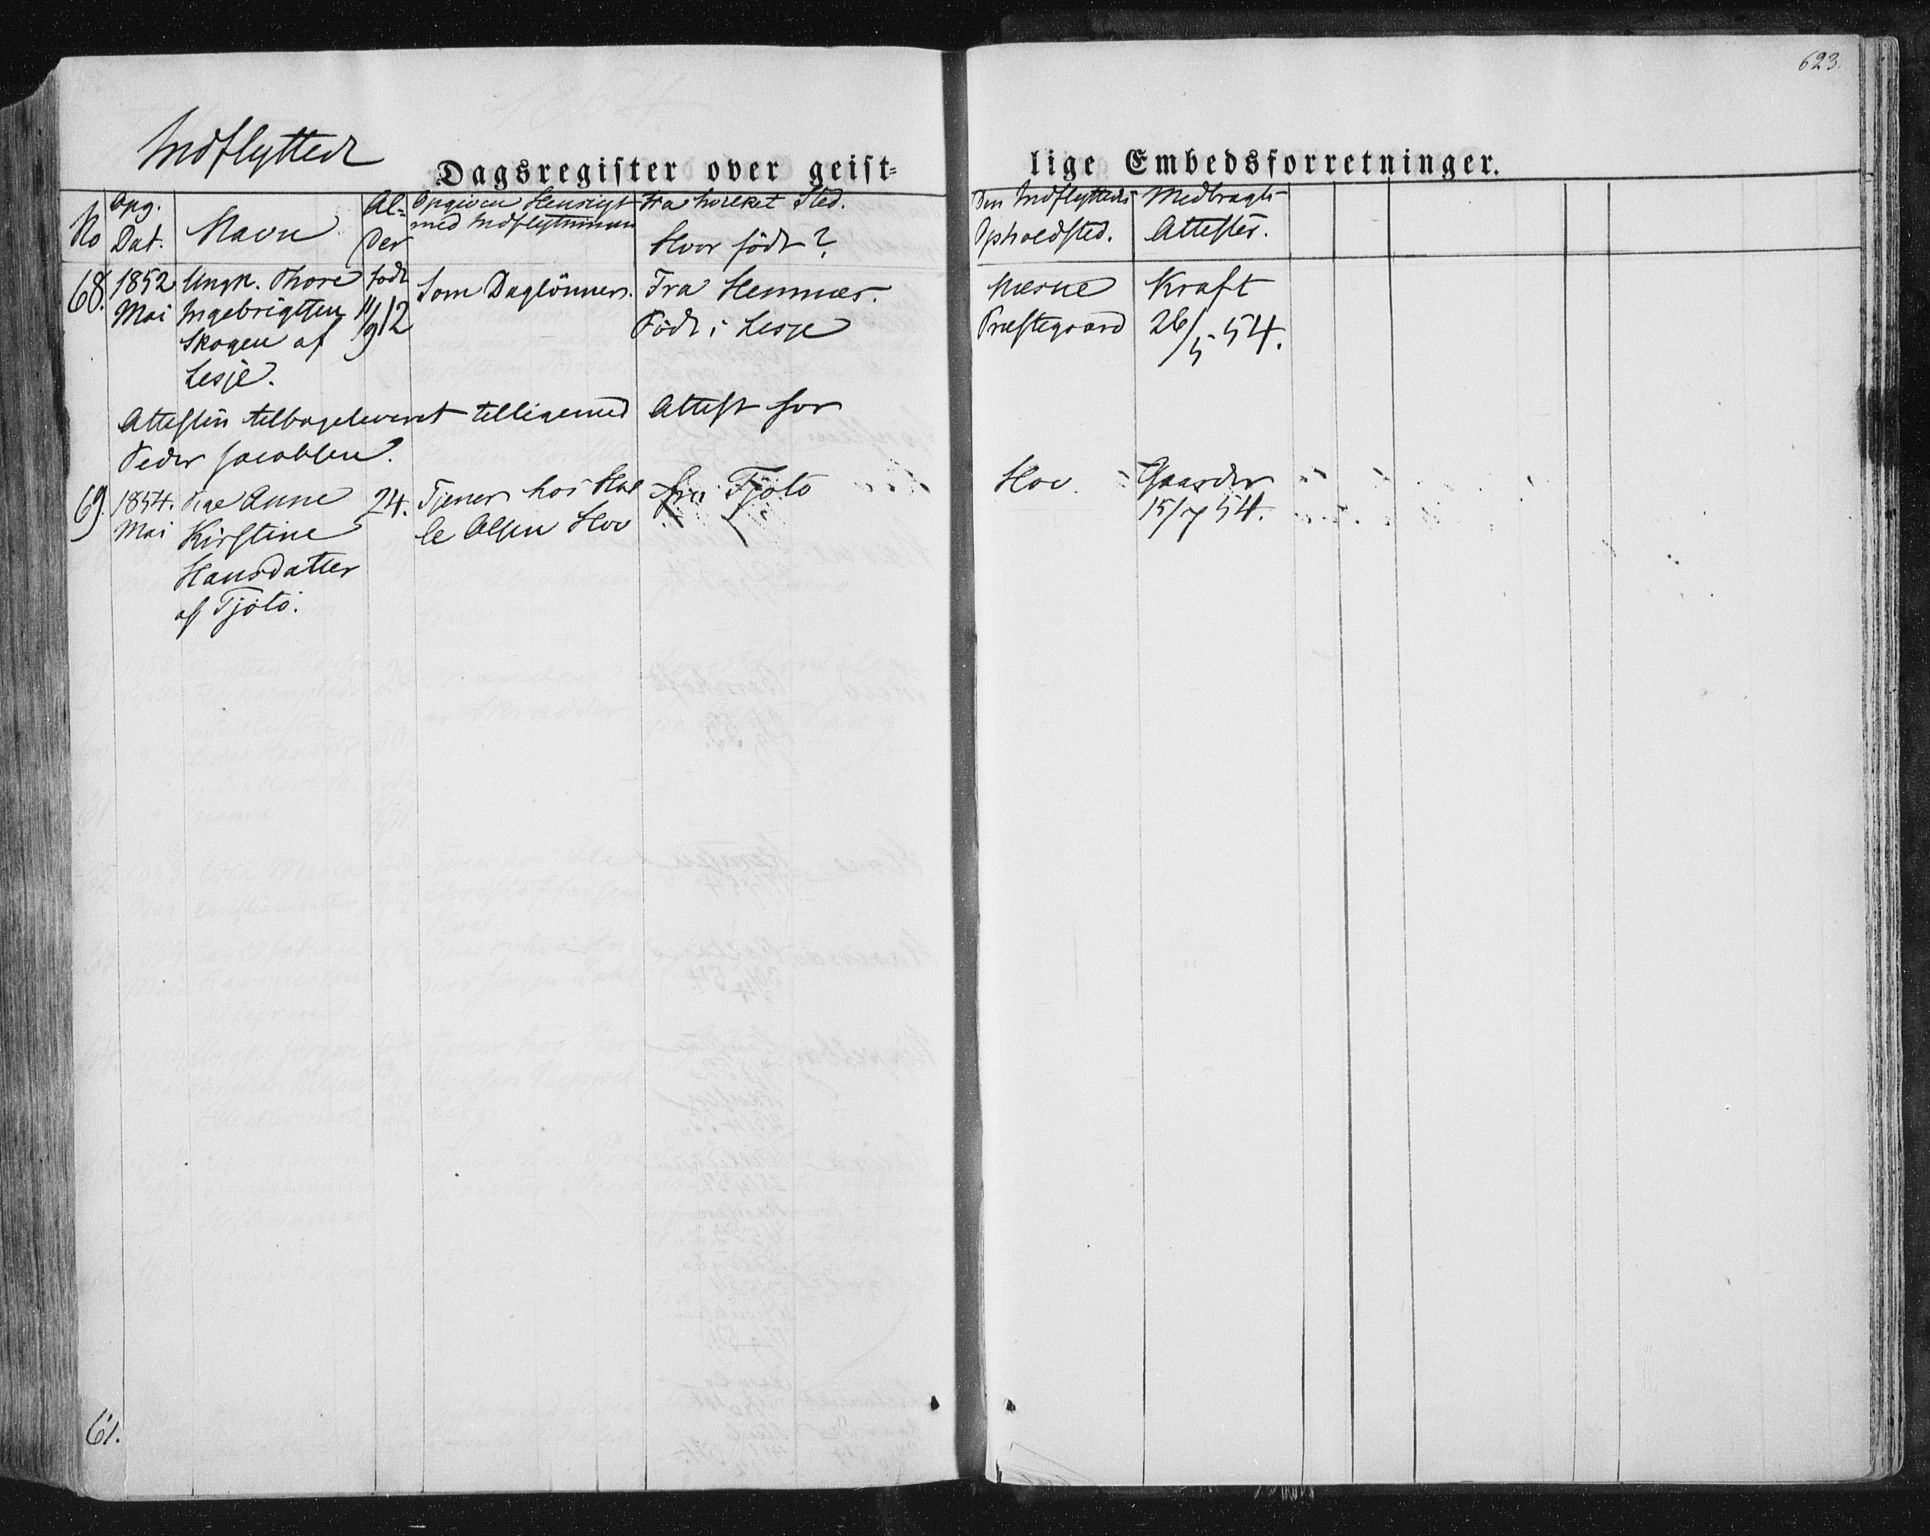 623.
Indflyttede
Dagsregister over geist-
lige Embedsforretninger.
No
Opg.
Dat.
Navn
Al-
der
Opgiven Hensigt
med Indflytningen
Fra hvilket Sted.
Hvor født?
Den Indflyttedes
Opholdsted.
Medbragte
Attester.
68.
1852
Mai
Ungk. Thore
Ingebrigtsen
Skogen af
Lesje.
født
11/9 12
Som Daglönner.
Fra Hemnæs.
Født i Lesje
Næsne
Præstegaard
Kraft
26/5 54.
Attesten tilbageleveret tilligemed Attest for
Peder Jacobsen.
69.
1854.
Mai
Pige Anne
Kirstine
Hansdatter
af Tjötö.
24.
Tjener hos Hal
le Olsen Hov
fra Tjötö
Hov.
Gaarder
15/7 54.
61.